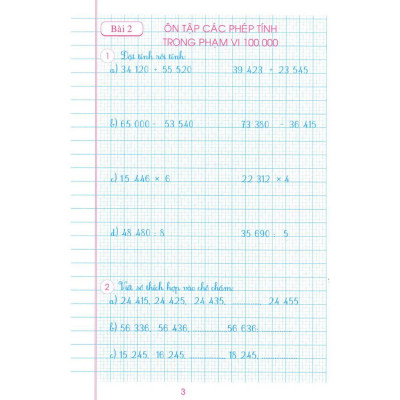 Bài 2
ÔN TẬP CÁC PHÉP TÍNH
TRONG PHẠM VI 100 000
1 Đặt tính rồi tính:
a) 34 120 + 55 520 39 423 + 23 545
b) 65 000 - 53 540 73 380 - 36 415
c) 15 446 × 6 22 312 × 4
d) 48 480 : 8 35 690 : 5
2 Viết số thích hợp vào chỗ chấm:
a) 24 415, 24 425, 24 435, ........... 24 455
b) 56 336, 56 436, ........... 56 636, ...........
c) 15 245, 16 245, ........... 18 245, ...........
3